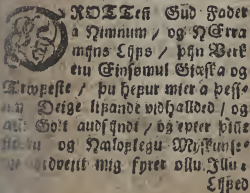 DROTTeñ Gud Fader
a Himnum / og HErra
mijns Lijfs / þijn Verk
eru Einsømul Giæska og
Trwfeste / þu hefur mier a þess-
Deige lijfande vidhallded / og
Gott audsyndt / og epter
og Nafoglegu Miskunse-
mig fyrer ollu Illu
Lijfved